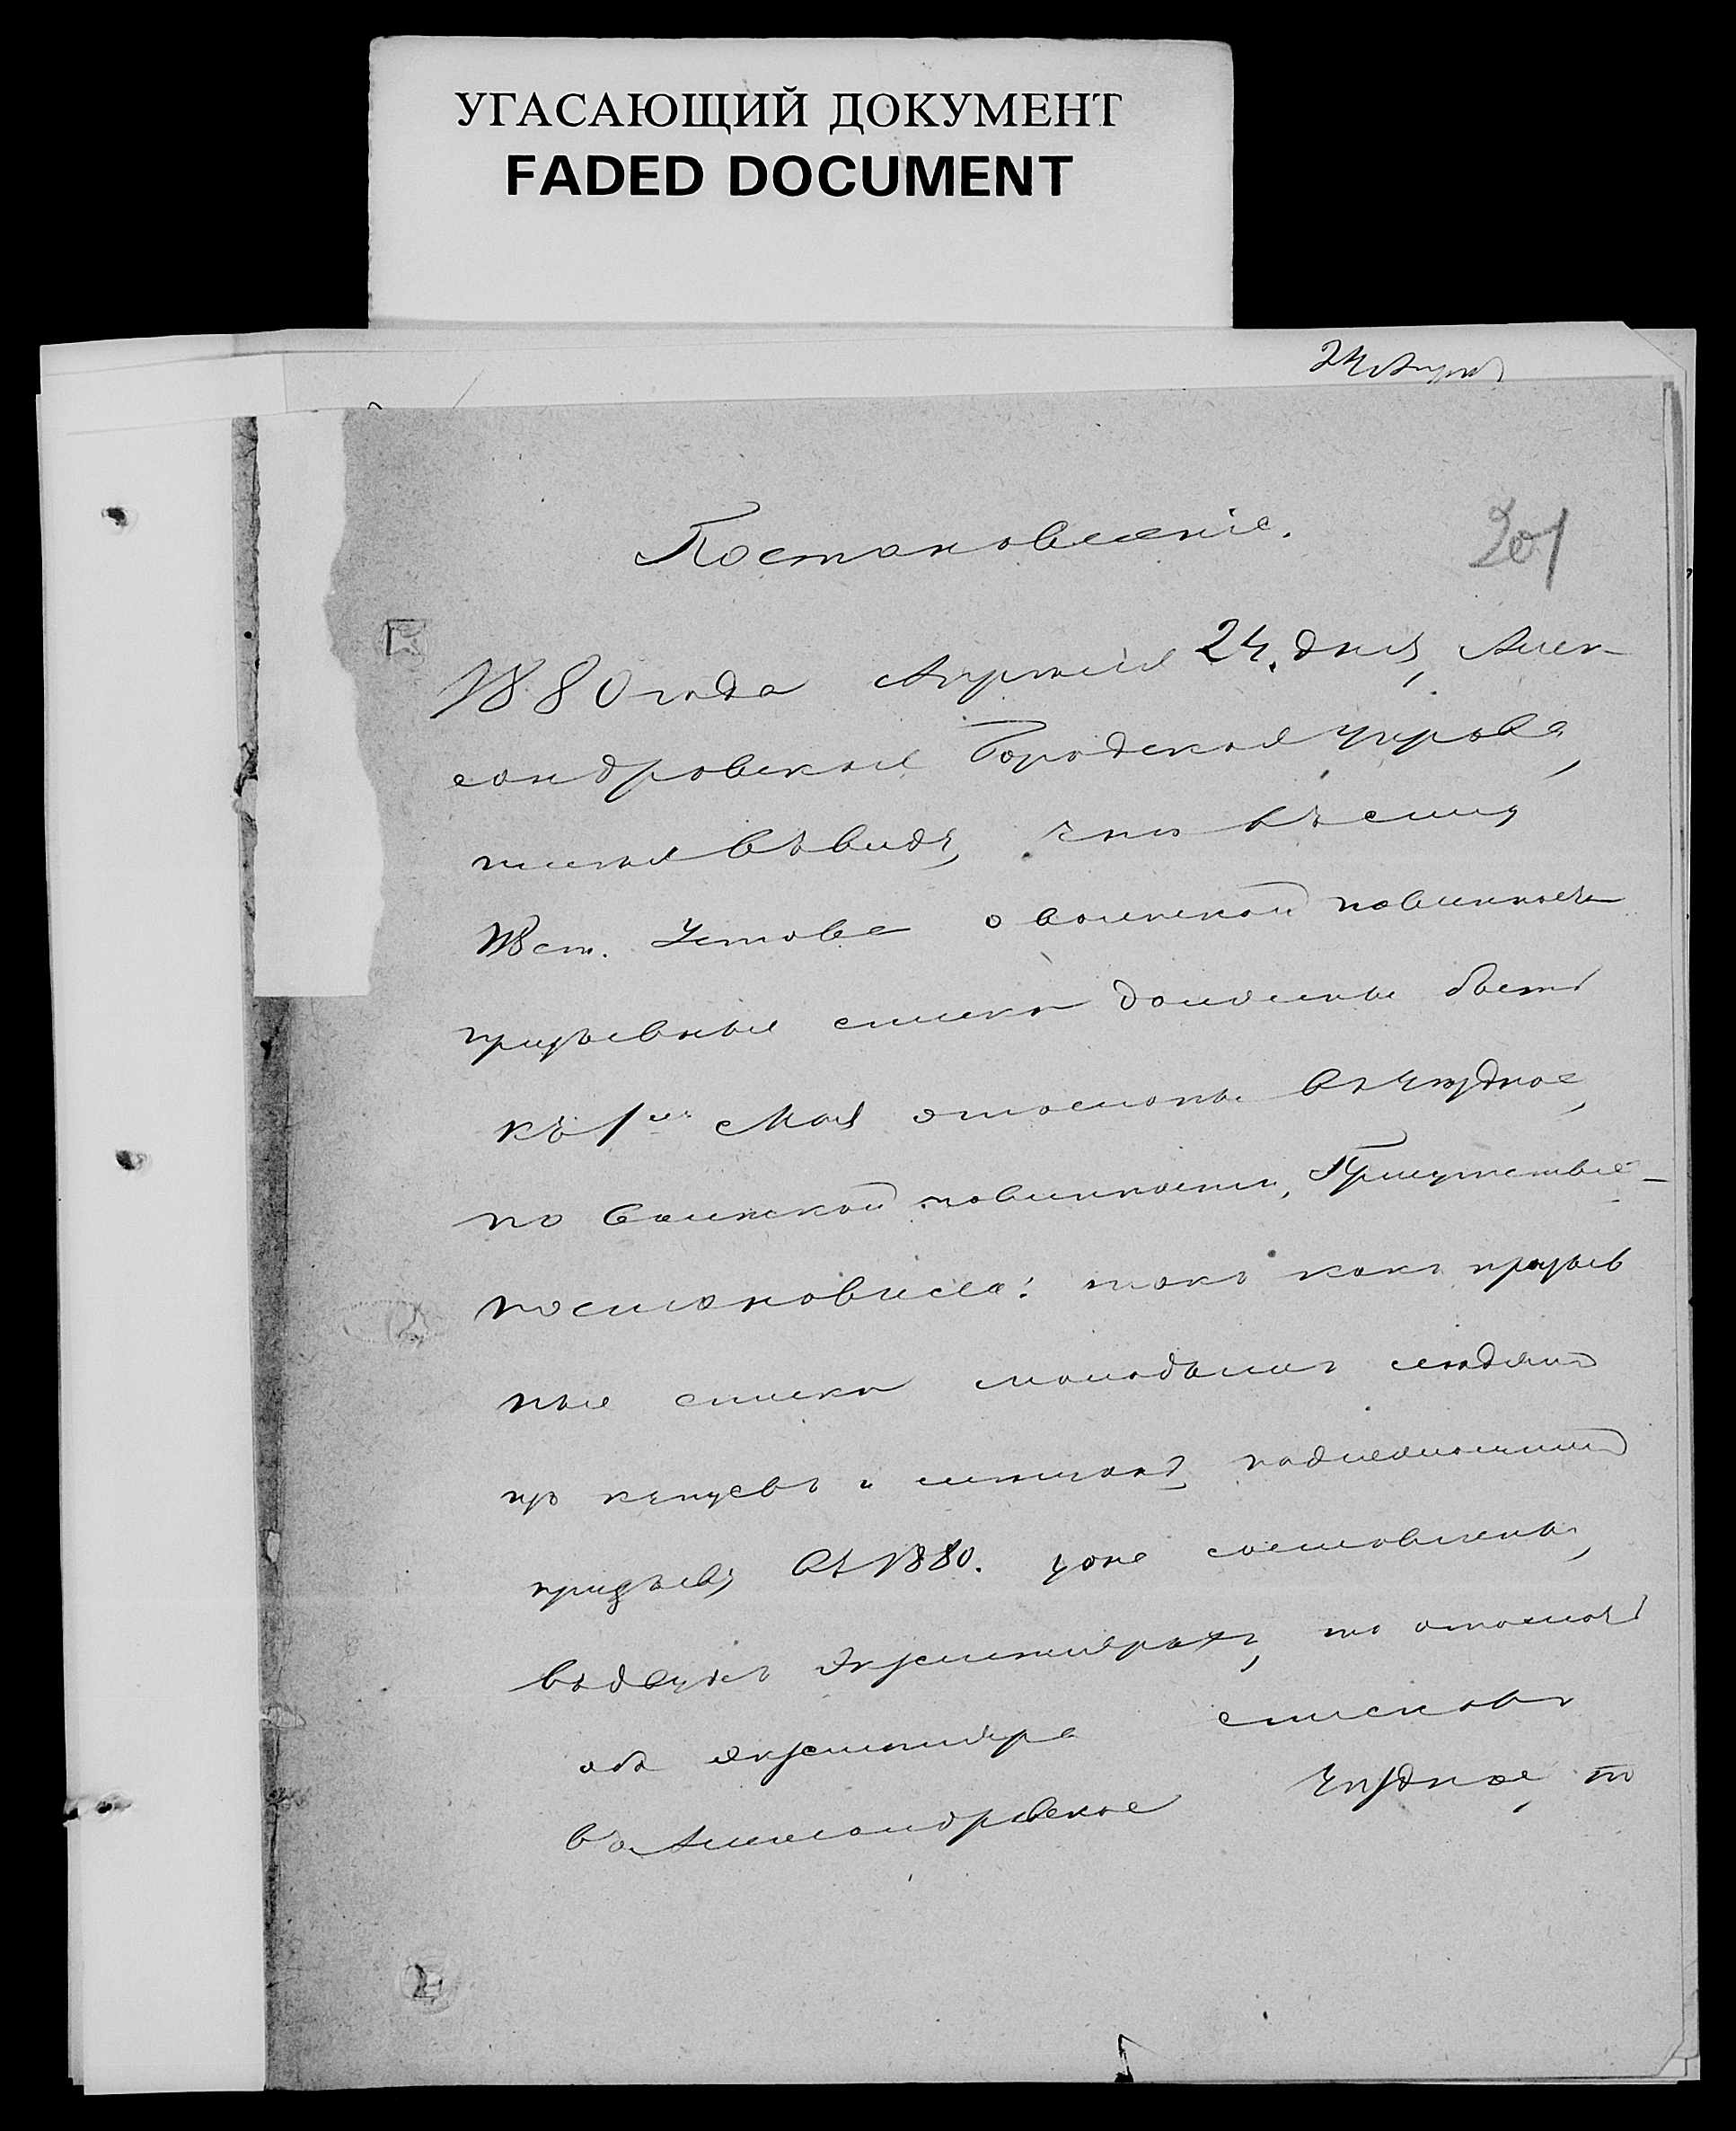 УГАСАЮЩИЙ ДОКУМЕНТ
FADED DOCUMENT
24 Апреля
Постановленіе.
201
1880 года Апреля 24 дня, Алек-
сандровская Городская управа,
имея въ виду, что къ силу
ст. Устава о воинской повинности
призывные списки должены быть
къ 1му Мая отосланы въ уездное,
по воинской повинности, Присутствіе-
постановила: такъ какъ призыв
ные списки молодымъ людямъ
изъ купцевъ и мещанъ, подлежащимъ
призыву въ 1880. уже составлены,
въ двухъ экземплярахъ, то отослать
оба экземпляра списковъ
въ Александровское уездное, по